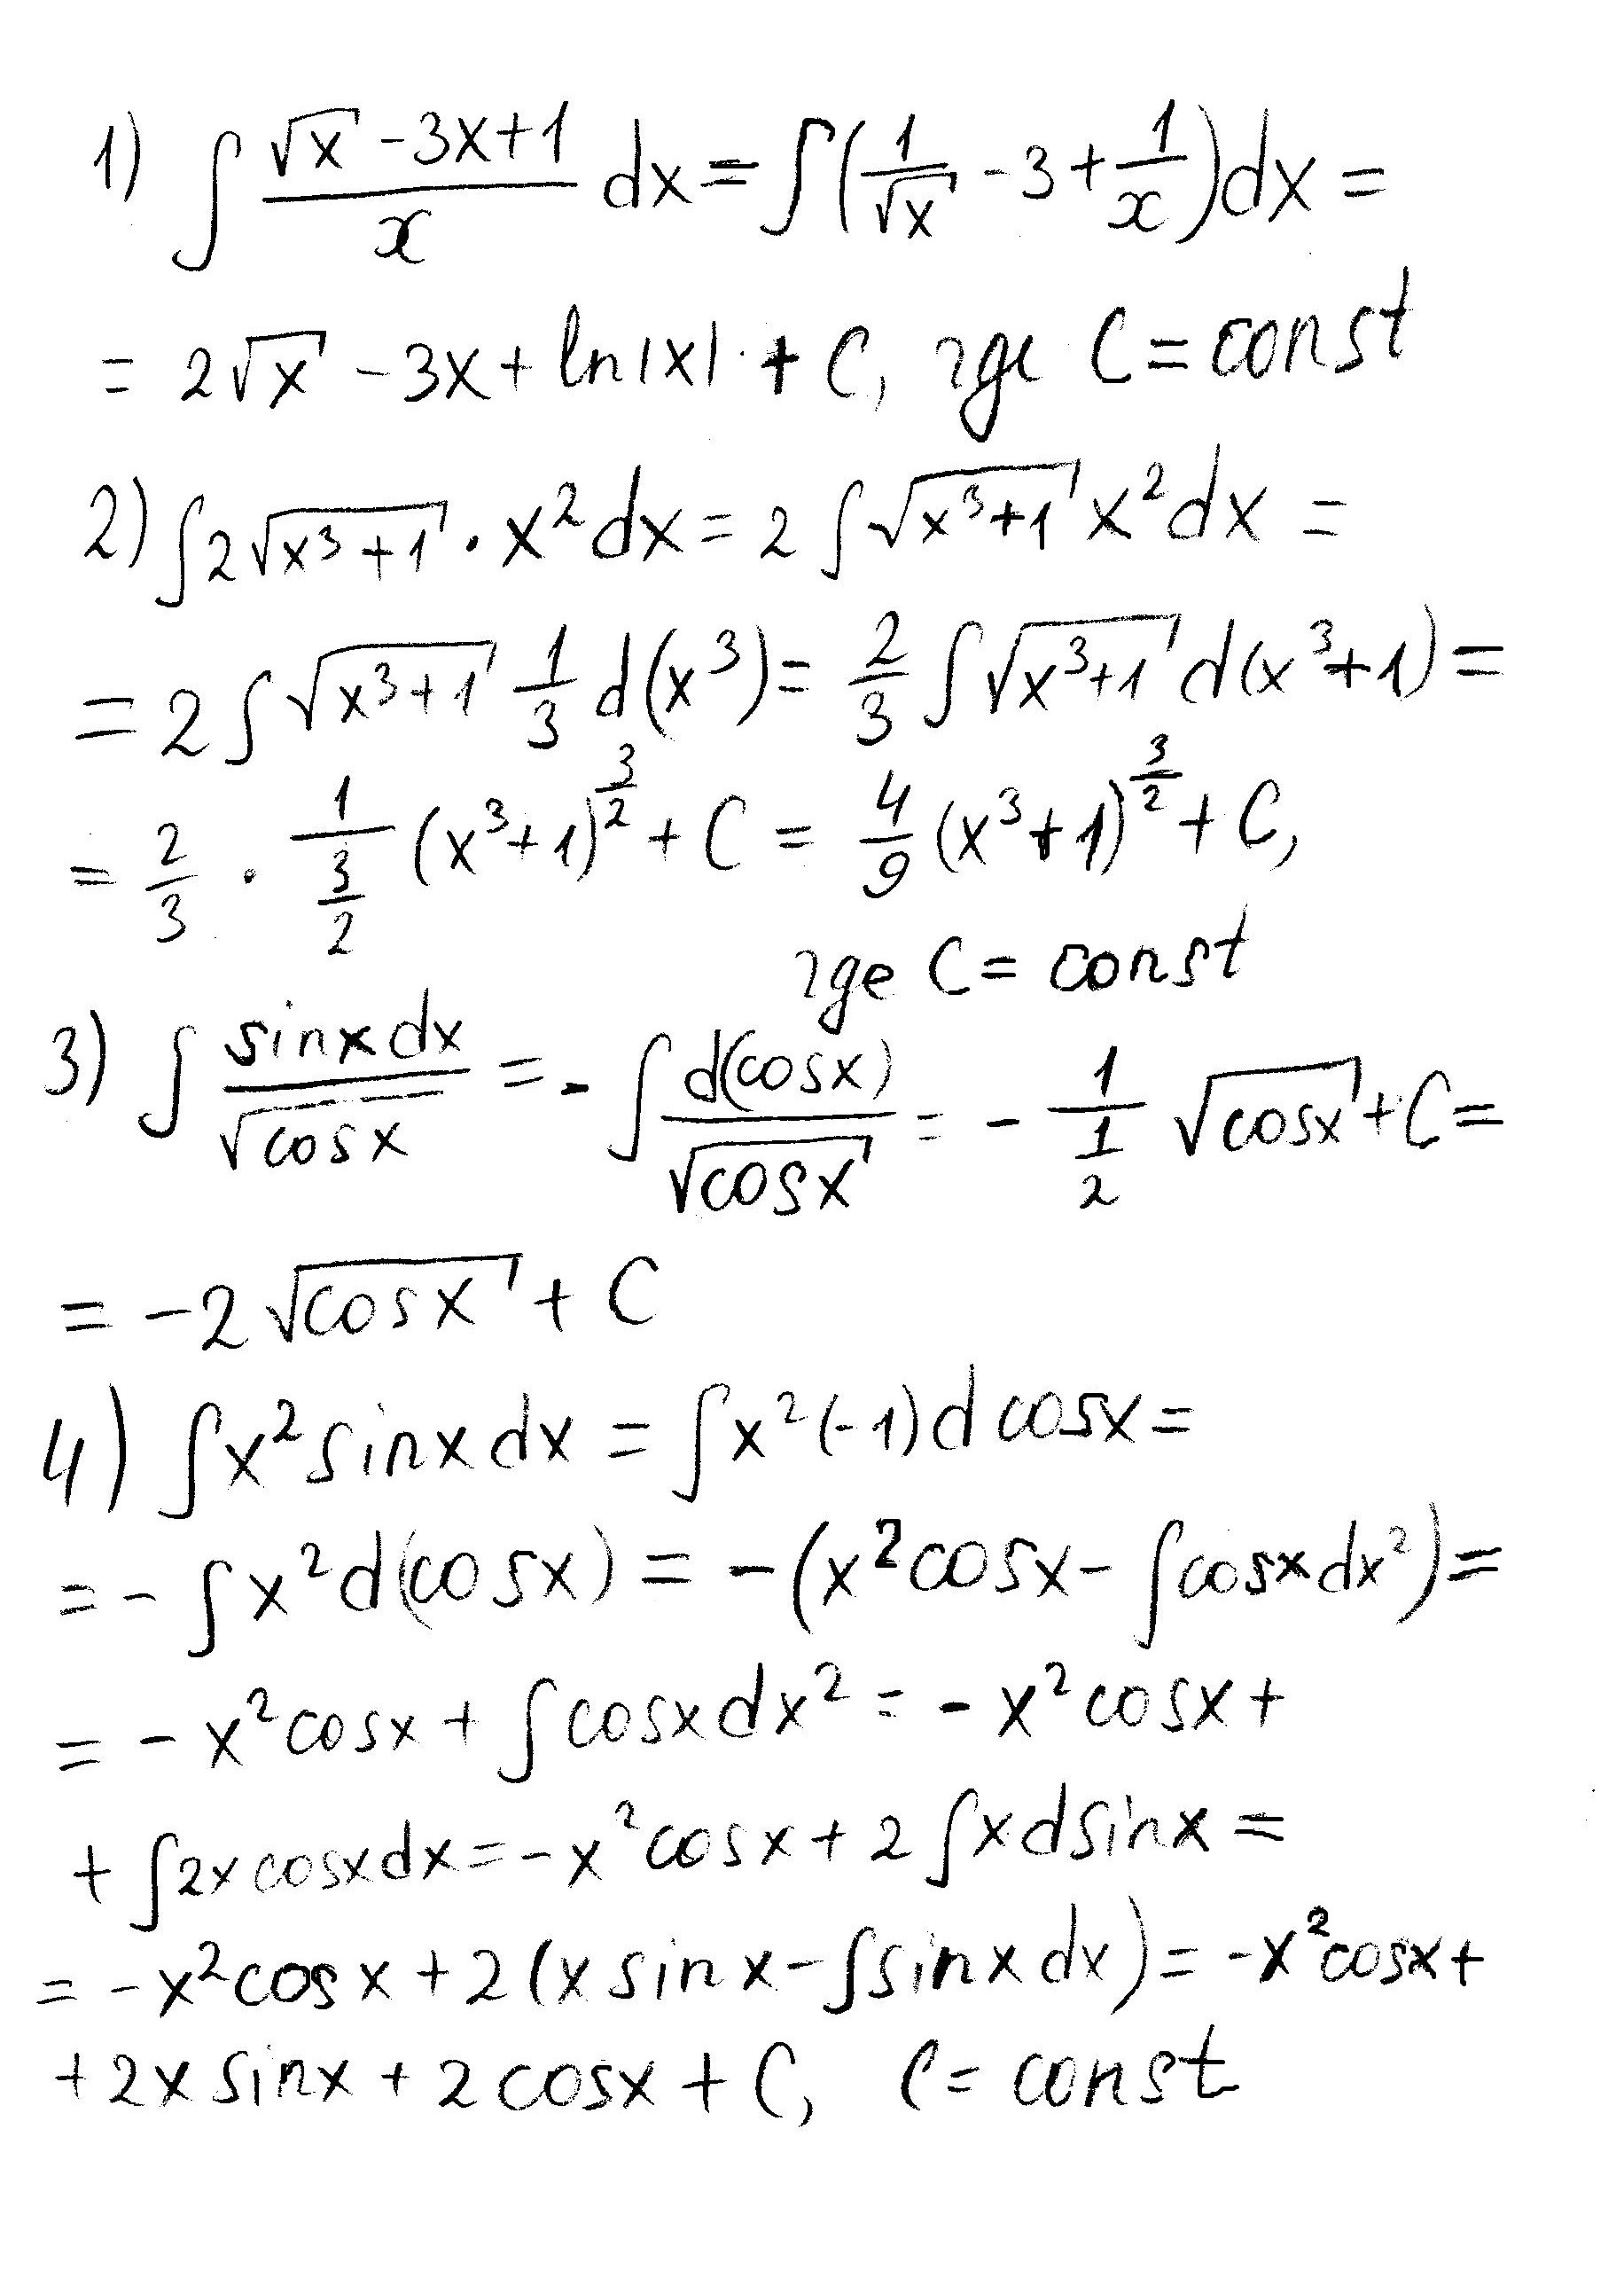 1) ∫ (√x - 3x + 1)/x dx = ∫ (1/√x - 3 + 1/x) dx =
= 2√x - 3x + ln|x| + C, где C = const
2) ∫ 2√(x³+1) · x² dx = 2 ∫ √(x³+1) x² dx =
= 2 ∫ √(x³+1) 1/3 d(x³) = 2/3 ∫ √(x³+1) d(x³+1) =
= 2/3 · 1/(3/2) (x³+1)^(3/2) + C = 4/9 (x³+1)^(3/2) + C,
где C = const
3) ∫ sinx dx/√cosx = - ∫ d(cosx)/√cosx = - 1/(1/2) √cosx + C =
= -2 √cosx + C
4) ∫ x² sinx dx = ∫ x² (-1) d cosx =
= - ∫ x² d(cosx) = - (x² cosx - ∫ cosx dx²) =
= - x² cosx + ∫ cosx dx² = - x² cosx +
+ ∫ 2x cosx dx = - x² cosx + 2 ∫ x d sinx =
= - x² cosx + 2 (x sinx - ∫ sinx dx) = - x² cosx +
+ 2x sinx + 2 cosx + C, C = const